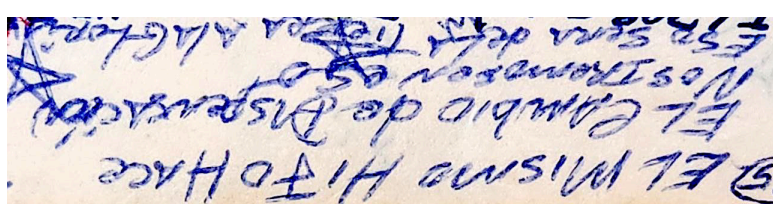 5 EL MISMO HIJO HACE
EL CAMBIO de DISPENSACIÓN
ESO
ESO SERA de LA TIERRA A LA GLORIA